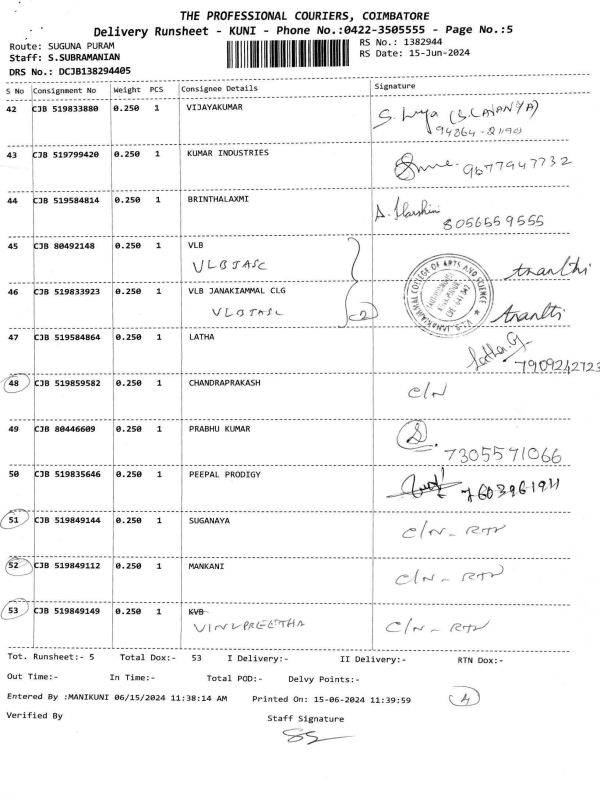 THE PROFESSIONAL COURIERS, COIMBATORE
Delivery Runsheet - KUNI - Phone No.:0422-3505555 - Page No.:5
Route: SUGUNA PURAM RS No.: 1382944
Staff: S.SUBRAMANIAN RS Date: 15-Jun-2024
DRS No.: DCJB138294405
S No Consignment No Weight PCS Consignee Details Signature
42 CJB 519833880 0.250 1 VIJAYAKUMAR
43 CJB 519799420 0.250 1 KUMAR INDUSTRIES 9677947732
44 CJB 519584814 0.250 1 BRINTHALAXMI A. Harshini
8056559555
45 CJB 80492148 0.250 1 VLB
VLBJASC
46 CJB 519833923 0.250 1 VLB JANAKIAMMAL CLG
VLBJASC 2
47 CJB 519584864 0.250 1 LATHA Latha.G
7909242723
48 CJB 519859582 0.250 1 CHANDRAPRAKASH C/N
49 CJB 80446609 0.250 1 PRABHU KUMAR S.
7305571066
50 CJB 519835646 0.250 1 PEEPAL PRODIGY 7603961911
51 CJB 519849144 0.250 1 SUGANAYA C/N - RTN
52 CJB 519849112 0.250 1 MANKANI C/N - RTN
53 CJB 519849149 0.250 1 KVB
VINUPREETHA C/N - RTN
Tot. Runsheet:- 5 Total Dox:- 53 I Delivery:- II Delivery:- RTN Dox:-
Out Time:- In Time:- Total POD:- Delvy Points:-
Entered By :MANIKUNI 06/15/2024 11:38:14 AM Printed On: 15-06-2024 11:39:59 4
Verified By Staff Signature